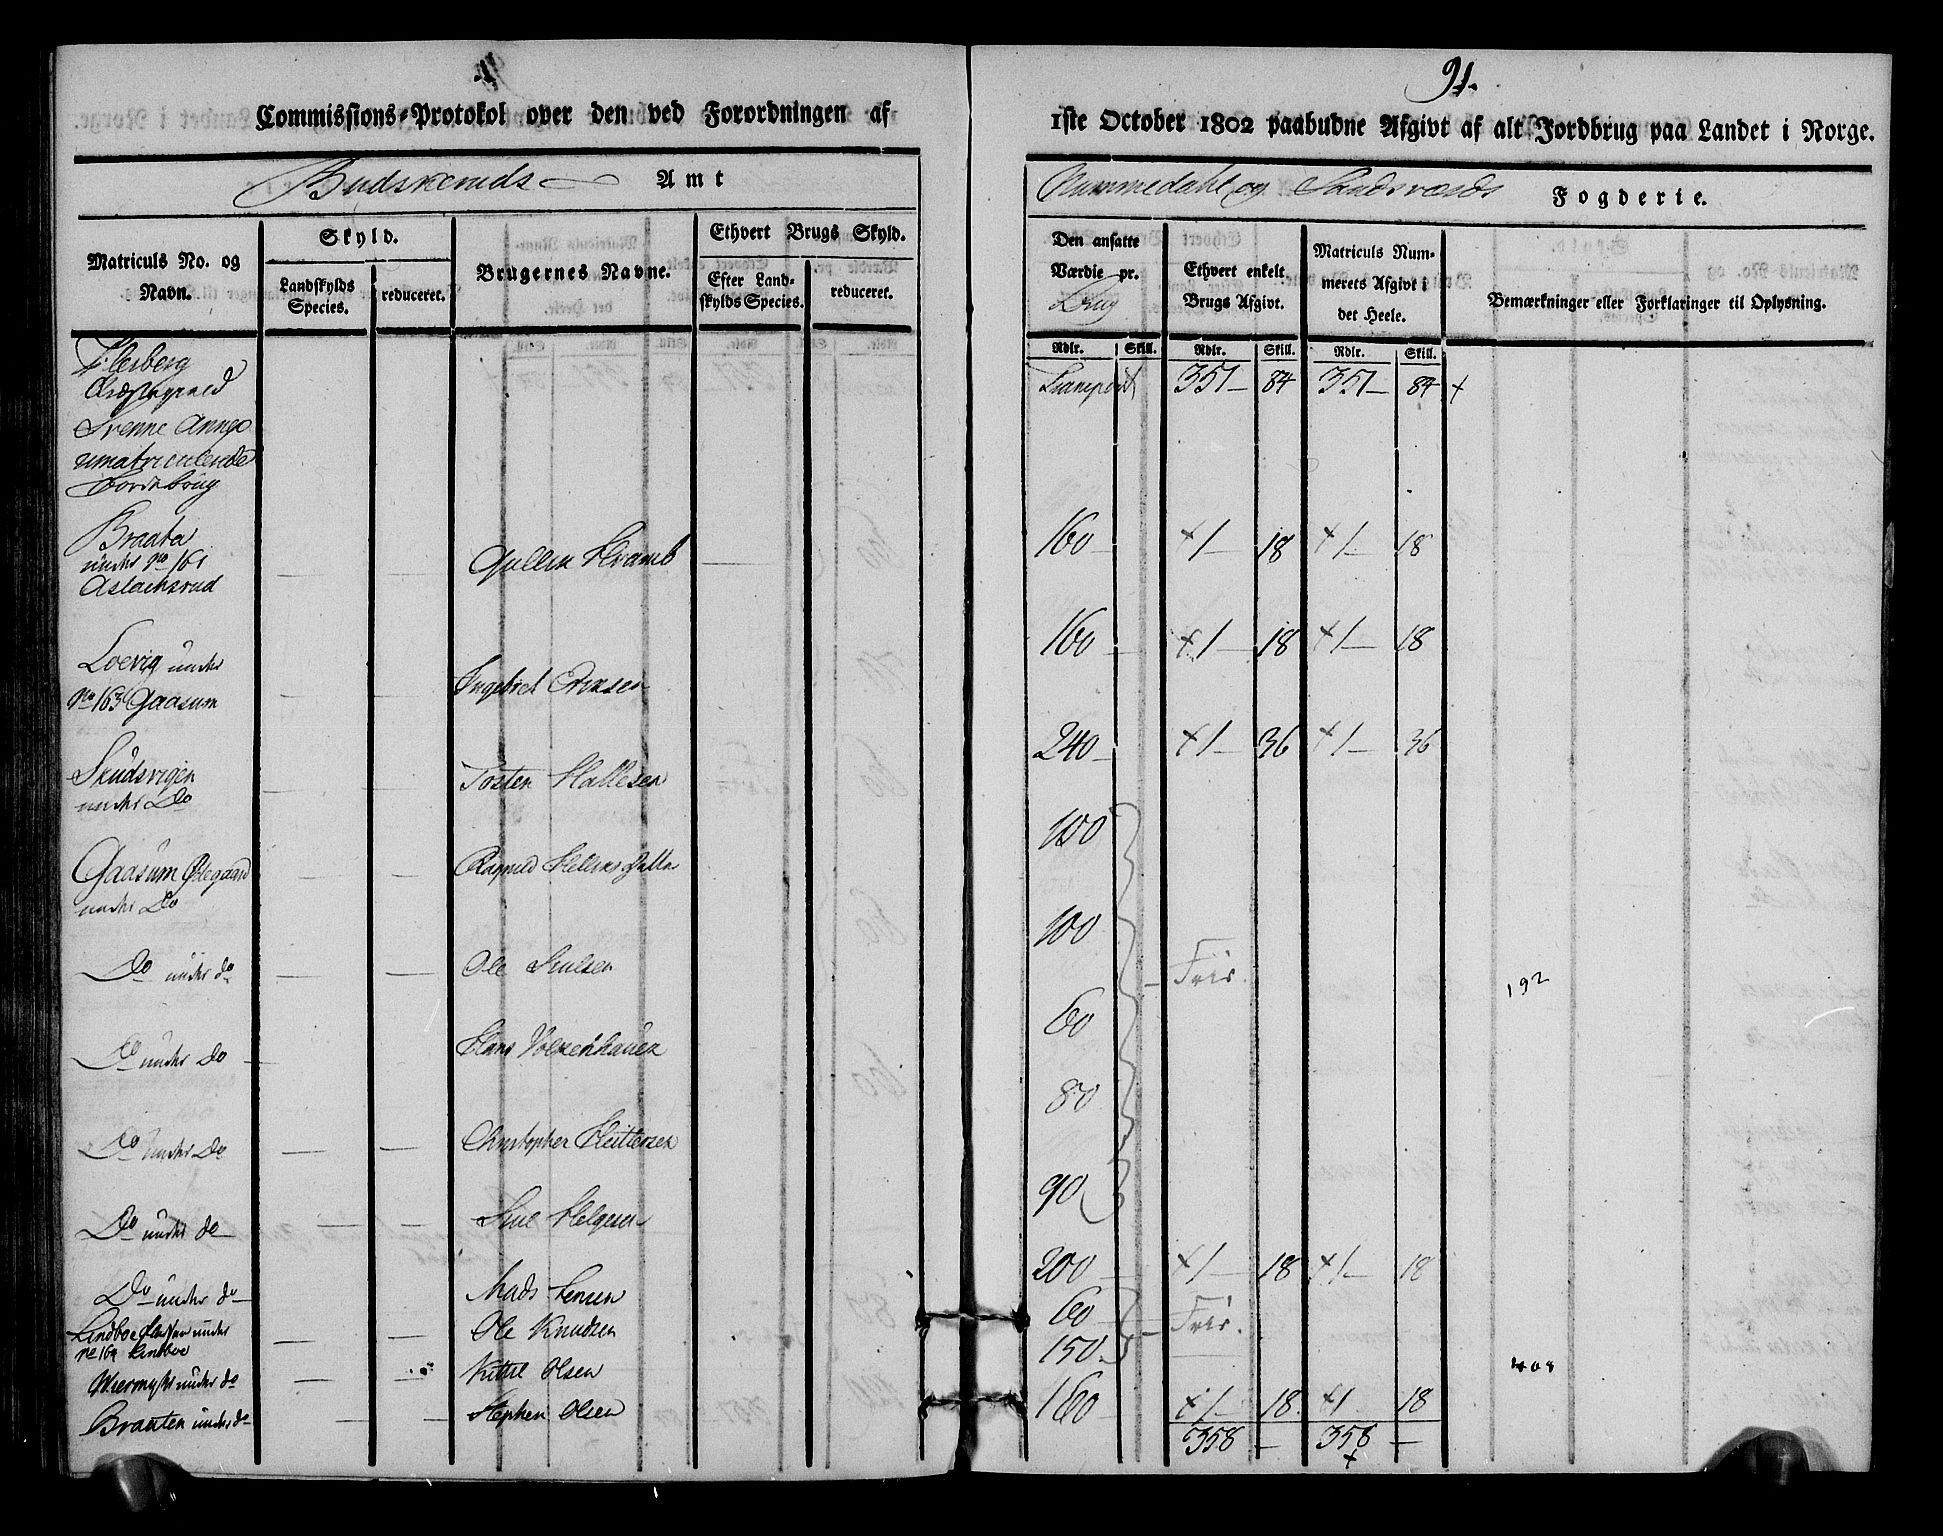 91.
Commissions-Protokol over den ved Forordningen af
1ste October 1802 paabudne Afgivt af alt Jordbrug paa Landet i Norge.
Budskeruds Amt
Nummedahl og Sandsværds Fogderie.
Matriculs No. og Navn.
Skyld.
Landskylds Species.
reduceret.
Brugernes Navne.
Ethvert Brugs Skyld.
Efter Landskylds Species.
reduceret.
Den ansatte Værdie pr. Brug
Ethvert enkelt Brugs Afgivt.
Matriculs Nummerets Afgivt i det Heele.
Bemærkninger eller Forklaringer til Oplysning.
Rdlr. Skill. Rdlr. Skill. Rdlr. Skill.
Flesberg
Præstegield
Svenne Annex
umatriculerede
Jordebrug
Transport 351 – 84 351 – 84 +
Braata
under No 161
Aslachsrud
160 – +1 – 18 +1 – 18
Loevig under
No 163 Gaasum Ingebret
160 – +1 – 18 +1 – 18
Skudsvigen Tosten Hallesen
under Do
240 – +1 – 36 +1 – 36
Gaasum Ødegaard
under Do
100
Do under do Ole
100
Friе.
192
Do under Do Hans
60
Do under Do Christopher
80
Do under do Helgesen
90
Do under do Mads Jensen 200 +1 – 18 +1 – 18
Lindboe under Ole Knudsen 60 Frie.
No 164 Lindboe
under do Kittil Olsen 150 –
408
Braaten under do Stephen Olsen 160 +1 – 18 +1 – 18
358 – 358 –
+